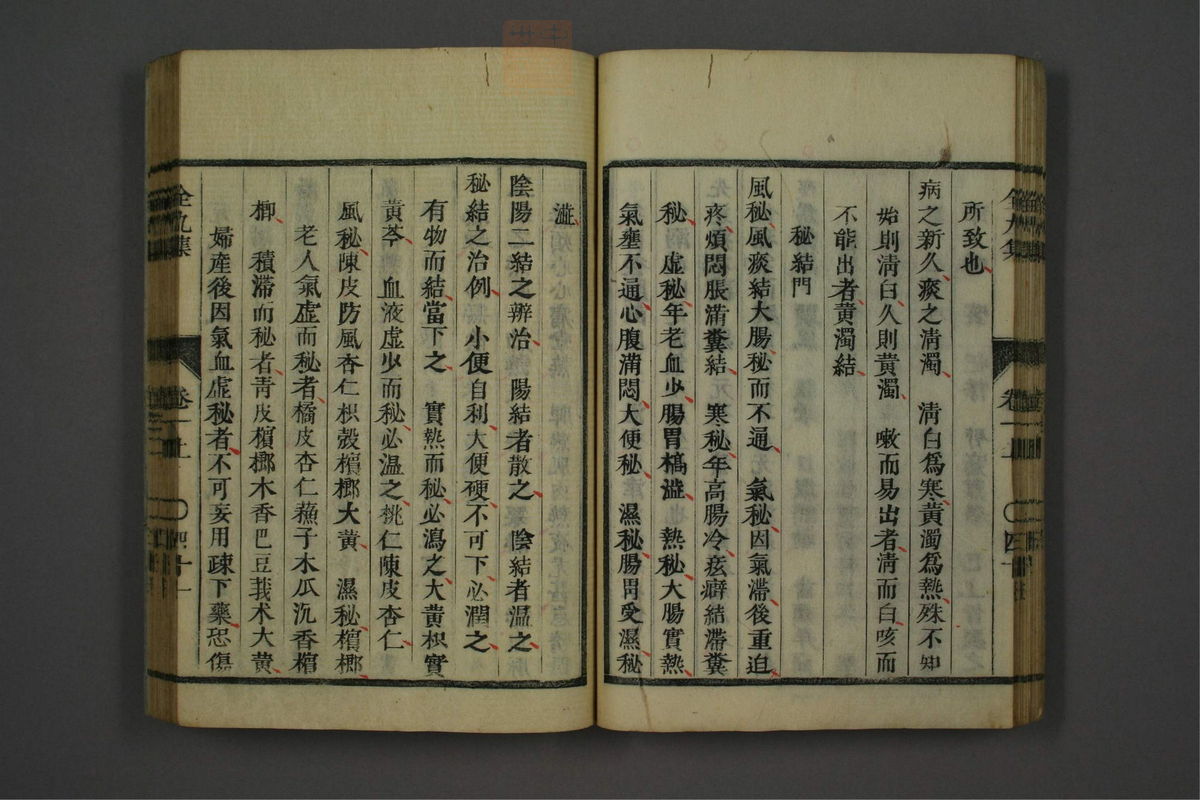 所致也
病之新久痰之清濁　清白爲寒黃濁爲熱殊不知
始則清白久則黃濁　嗽而易出者清而白咳而
不能出者黃濁結
秘結門
風秘風痰結大腸秘而不通　氣秘因氣滯後重迫
疼煩悶脹滿糞結　寒秘年高腸冷痃癖結滯糞
秘　虛秘年老血少腸胃槁澁　熱秘大腸實熱
氣壅不通心腹滿悶大便秘　濕秘腸胃受濕秘
澁
陰陽二結之辨治　陽結者散之　陰結者溫之
秘結之治例　小便自利大便硬不可下必潤之
有物而結當下之　實熱而秘必瀉之大黃枳實
黃芩　血液虛少而秘必溫之桃仁陳皮杏仁
風秘陳皮防風杏仁枳殼檳榔大黃　濕秘檳榔
老人氣虛而秘者橘皮杏仁蘓子木瓜沉香檳
榔　積滯而秘者青皮檳榔木香巴豆莪朮大黃
婦產後因氣血虛秘者不可妄用疎下藥恐傷
全九集　卷一上　四十
全九集　卷一上　四十一